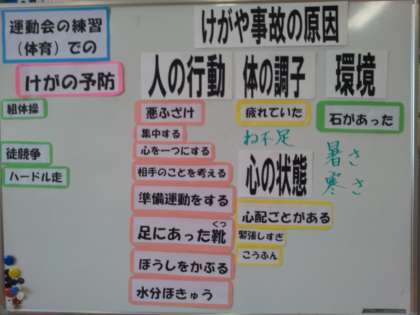 運動会の練習
(体育)での
けがの予防
組体操
徒競争
ハードル走
けがや事故の原因
人の行動
悪ふざけ
集中する
心を一つにする
相手のことを考える
準備運動をする
くつ
足にあった靴
ぼうしをかぶる
水分ほきゅう
体の調子
疲れていた
ね不足
心の状態
心配ごとがある
緊張しすぎ
こうふん
環境
石があった
暑さ
寒さ